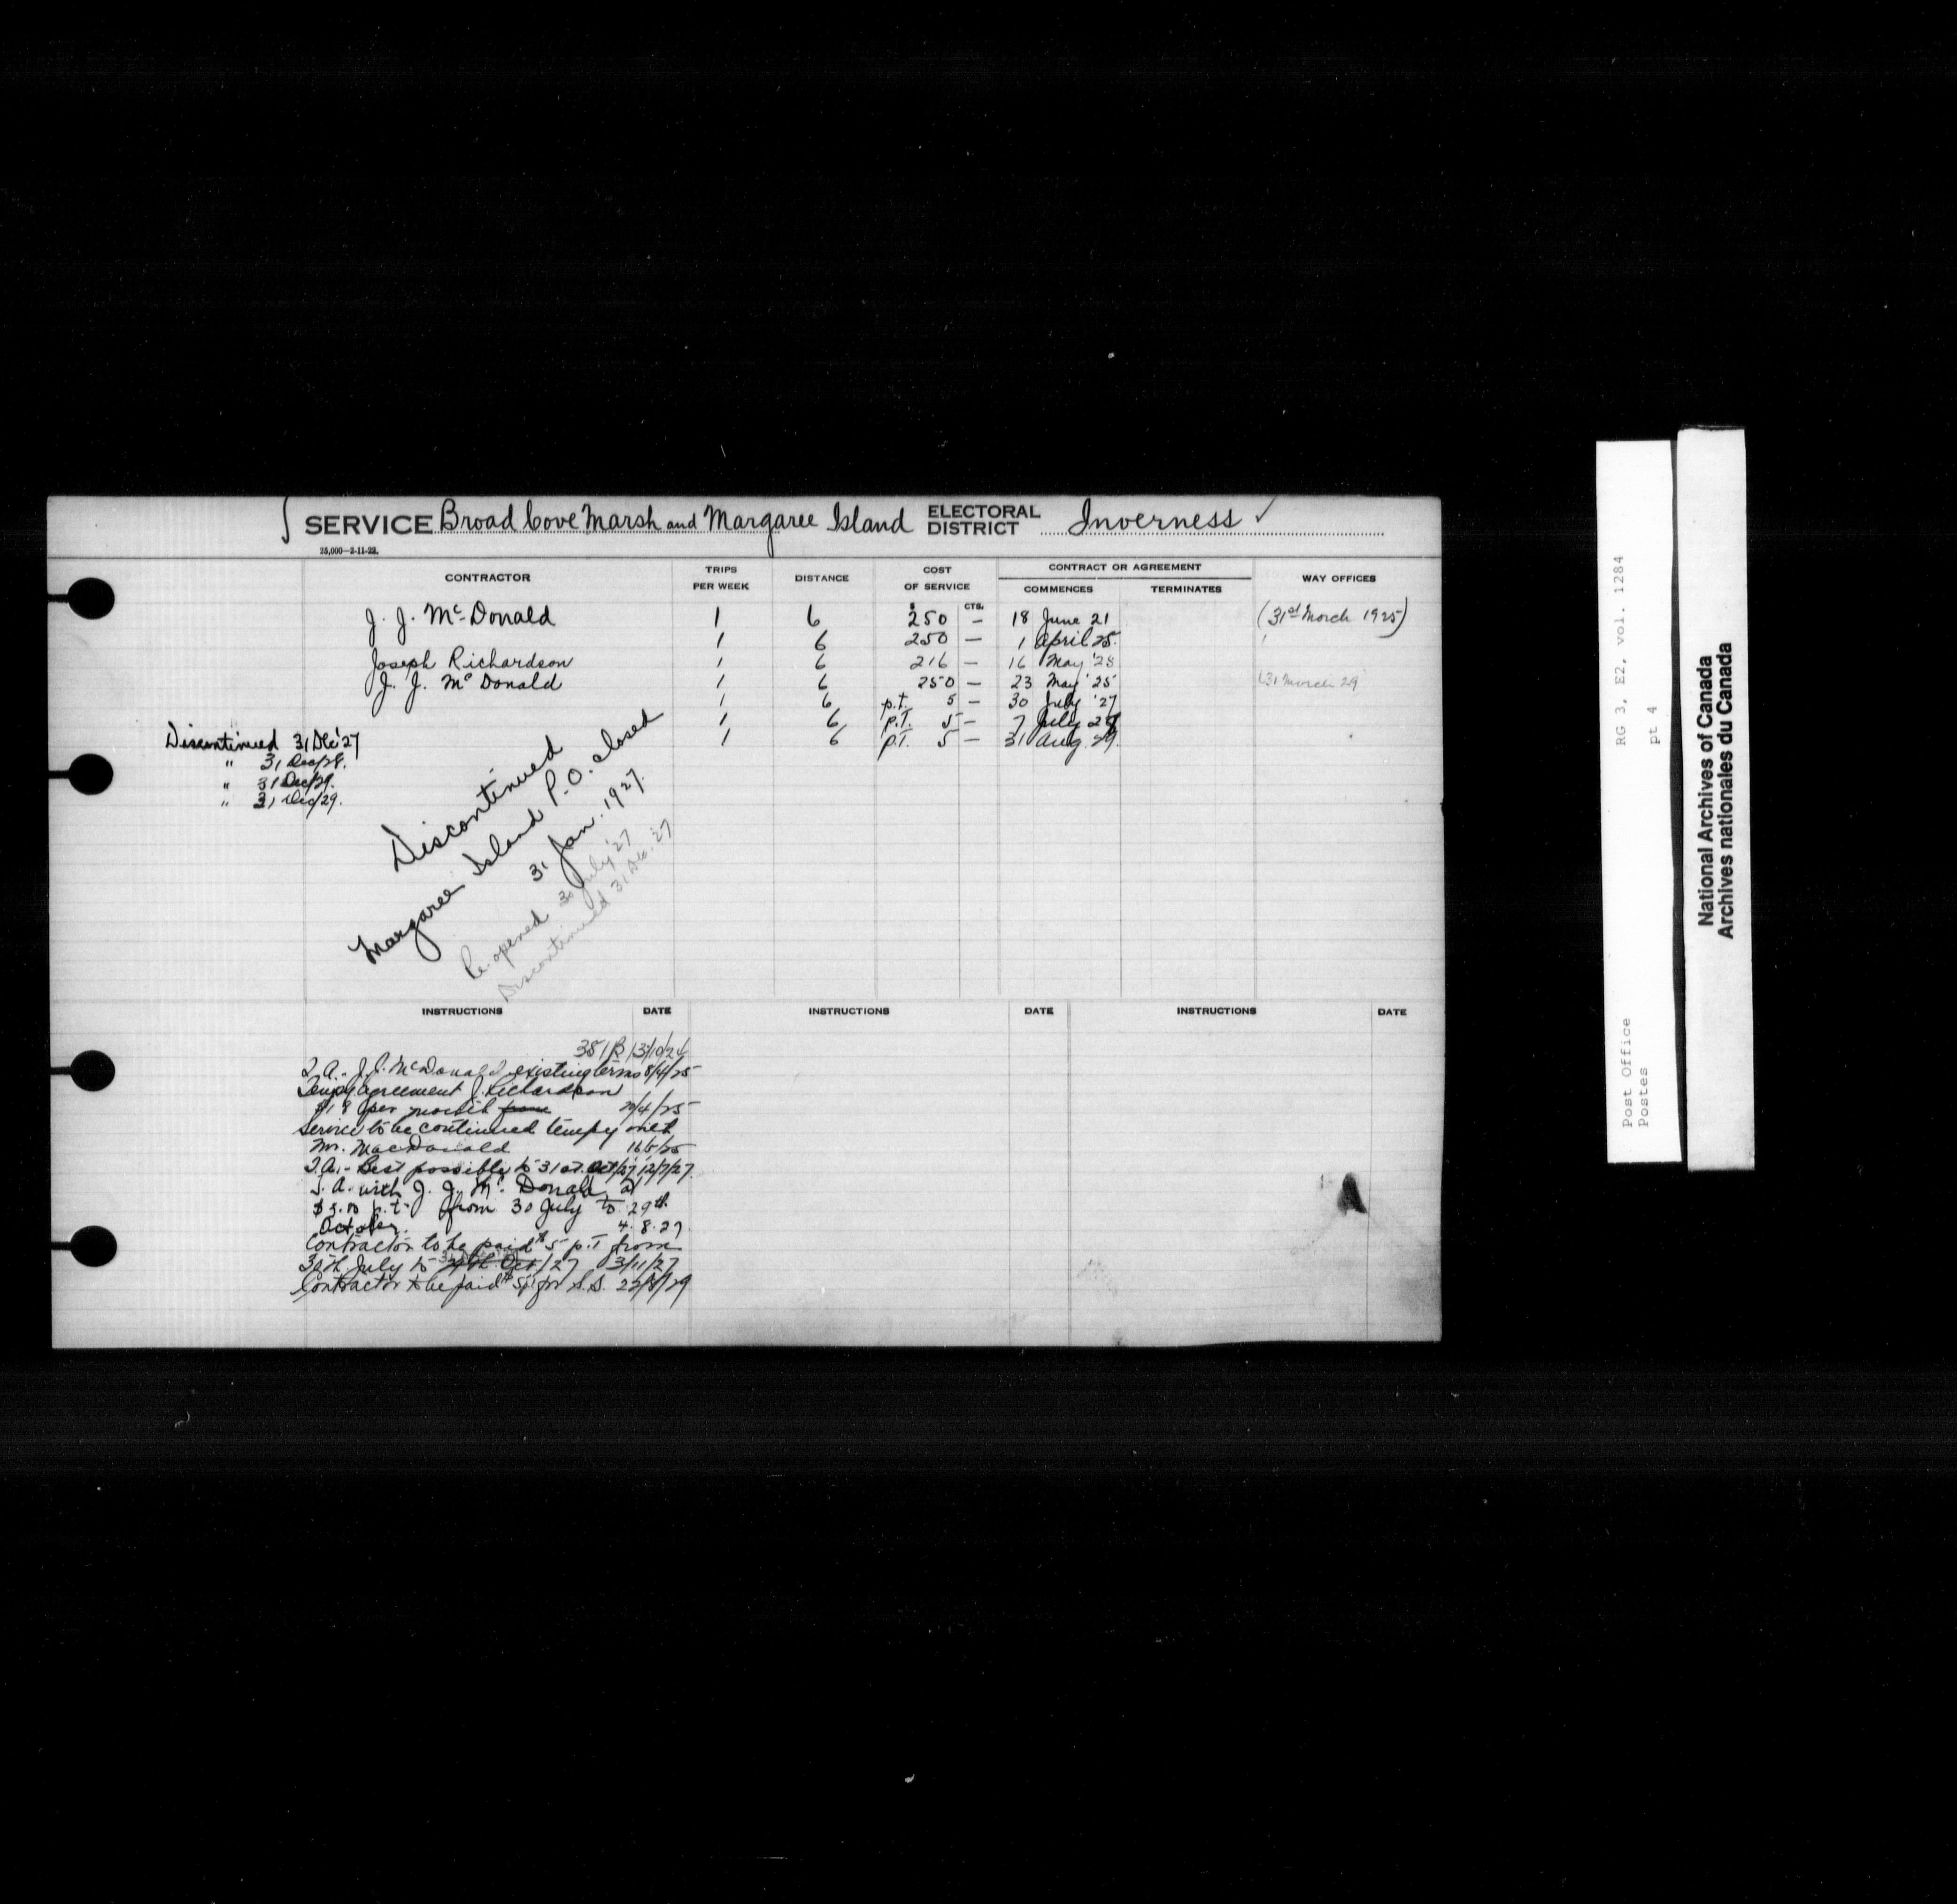 SERVICE Broad Cove Marsh and Margaree Island ELECTORAL DISTRICT Inverness ✓
25,000—2-11-22.
CONTRACTOR TRIPS PER WEEK DISTANCE COST OF SERVICE CONTRACT OR AGREEMENT COMMENCES TERMINATES WAY OFFICES
$ CTS.
J. J. McDonald 1 6 250 — 18 June 21 (31st March 1925)
1 6 250 — 1 April 25.
Joseph Richardson 1 6 216 — 16 May '25
J. J. McDonald 1 6 250 — 23 May '25 (31 March 29
1 6 p.t. 5 — 30 July '27
1 6 p.T. 5 — 7 July
1 6 p.T. 5 — 31 Aug. 29.
Discontinued 31 Dec '27
" 31 Dec/28.
" 31 Dec/29.
" 31 Dec/29.
Discontinued
Margaree Island P.O. closed
31 Jan. 1927.
Re-opened 30 July '27
Discontinued 31 Dec. '27
INSTRUCTIONS DATE INSTRUCTIONS DATE INSTRUCTIONS DATE
J. J. McDonald existing terms 8/4/25
Tempy agreement J. Richardson
$18 per month from /4/25
Service to be continued tempy with
Mr. MacDonald 16/5/25
T.A. - Best possible to 31st Oct/27 12/7/27
T.A. with J. J. McDonald at
$5.00 p.t. from 30 July to 29th
October. 4.8.27
Contractor to be paid $5 p.T from
30th July to Oct/27 3/11/27
Contractor to be paid $5 for S.S. 22/8/29
A
Post Office RG 3, E2, vol. 1284
Postes pt 4
National Archives of Canada
Archives nationales du Canada